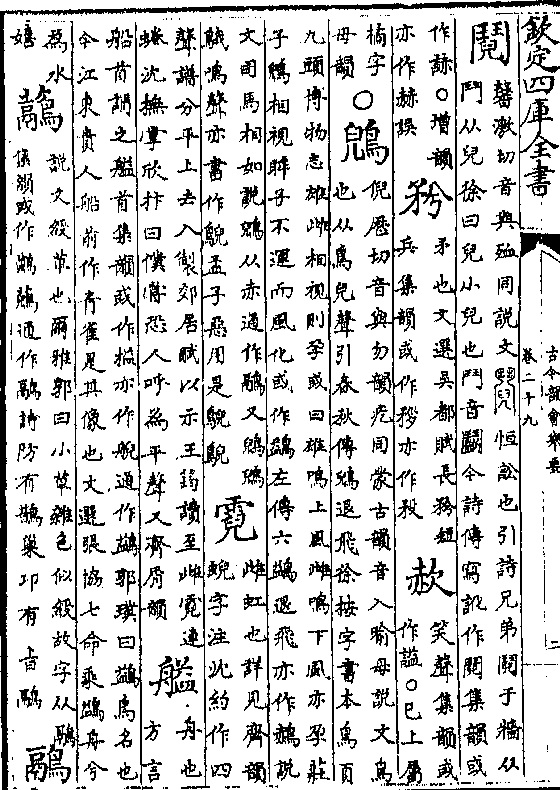 欽定四庫全書
古今韻會舉要
卷二十九
二
鬩 馨激切音與殈同說文鬩恒訟也引詩兄弟鬩于牆从
鬥从兒徐曰兒小兒也鬥音鬭今詩傳寫訛作閱集韻或
作䛊○增韻亦作赫誤 矜 矛也文選吳都賦長矜短兵集韻或作䂎亦作殺 赥 笑聲集韻或作謚○已上屬
橘字母韻 ○鶂 倪歷切音與勿韻疙同蒙古韻音入喻母說文鳥
也从鳥兒聲引春秋傳鶂退飛徐按字書本鳥頁
九頭博物志雄雌相視則孕或曰雄鳴上風雌鳴下風亦孕莊
子鶂相視眸子不運而風化或作鷁左傳六鷁退飛亦作鶃說
文司馬相如說鶂从赤通作鷊又鶂鶂
鵝鳴聲亦書作鶃孟子惡用是鶃鶃 霓 雌虹也詳見齊韻
鯢字注沈約作四
聲譜分平上去入製郊居賦以示王筠讀至雌霓連
蜷沈撫掌欣抃曰僕嘗恐人呼為平聲又齊屑韻 艗 舟也
方言
船首謂之艗首集韻或作㮰亦作艗通作鷁郭璞曰鷁鳥名也
今江東貴人船前作青雀是其像也文選張協七命乘鷁舟兮
為水嬉 虉 說文綬草也爾雅郭曰小草雜色似綬故字从鷊
集韻或作鷁虉通作鷊詩防有鵲巢卭有旨鷊 鷊